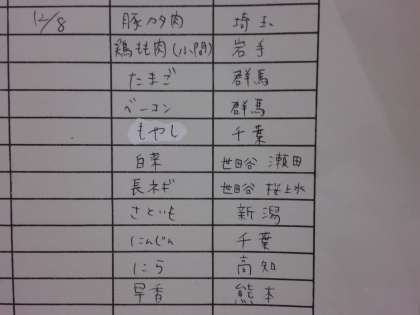 12/8 豚モモ肉 埼玉
鶏もも肉(小間) 岩手
たまご 群馬
ベーコン 群馬
もやし 千葉
白菜 世田谷 瀬田
長ネギ 世田谷 桜上水
さといも 新潟
にんじん 千葉
にら 高知
早香 熊本